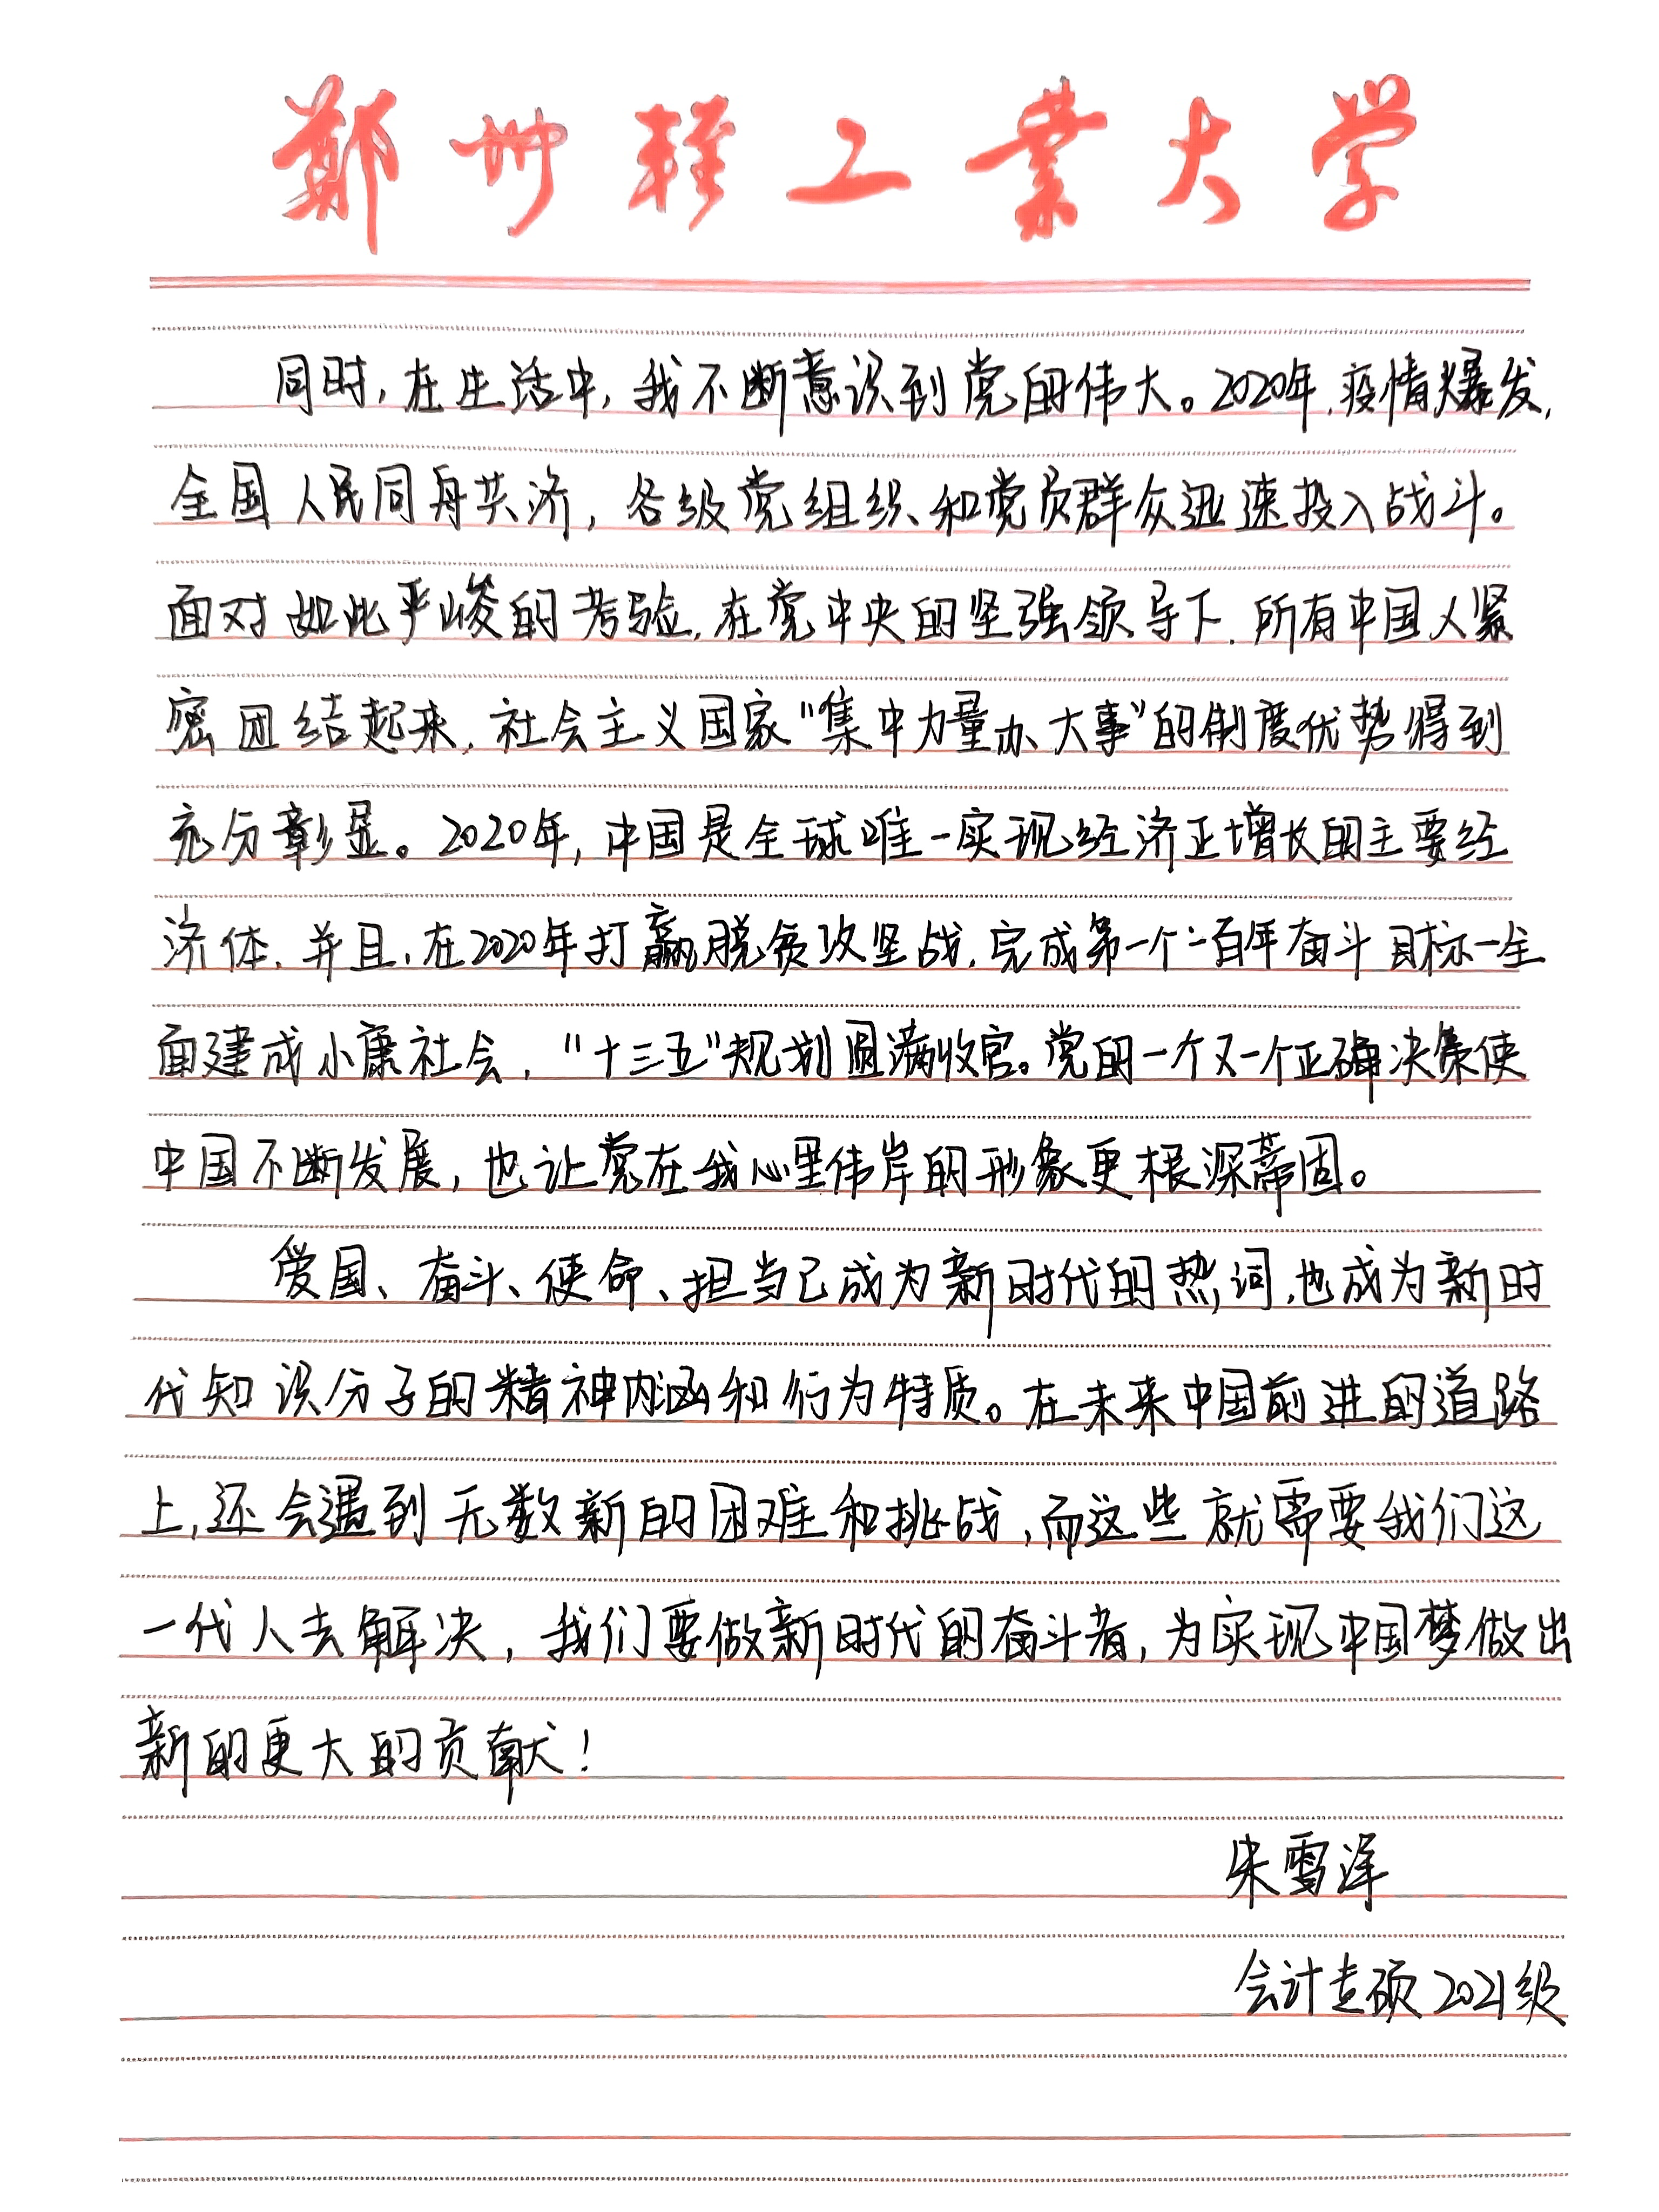 郑州轻工业大学
同时,在生活中,我不断意识到党的伟大。2020年,疫情爆发,
全国人民同舟共济,各级党组织和党员群众迅速投入战斗。
面对如此严峻的考验,在党中央的坚强领导下,所有中国人紧
密团结起来,社会主义国家“集中力量办大事”的制度优势得到
充分彰显。2020年,中国是全球唯一实现经济正增长的主要经
济体,并且,在2020年打赢脱贫攻坚战,完成第一个一百年奋斗目标—全
面建成小康社会,“十三五”规划圆满收官。党的一个又一个正确决策使
中国不断发展,也让党在我心里伟岸的形象更根深蒂固。
爱国、奋斗、使命、担当已成为新时代的热词,也成为新时
代知识分子的精神内涵和行为特质。在未来中国前进的道路
上,还会遇到无数新的困难和挑战,而这些就需要我们这
一代人去解决,我们要做新时代的奋斗者,为实现中国梦做出
新的更大的贡献!
朱雪泽
会计专硕2021级